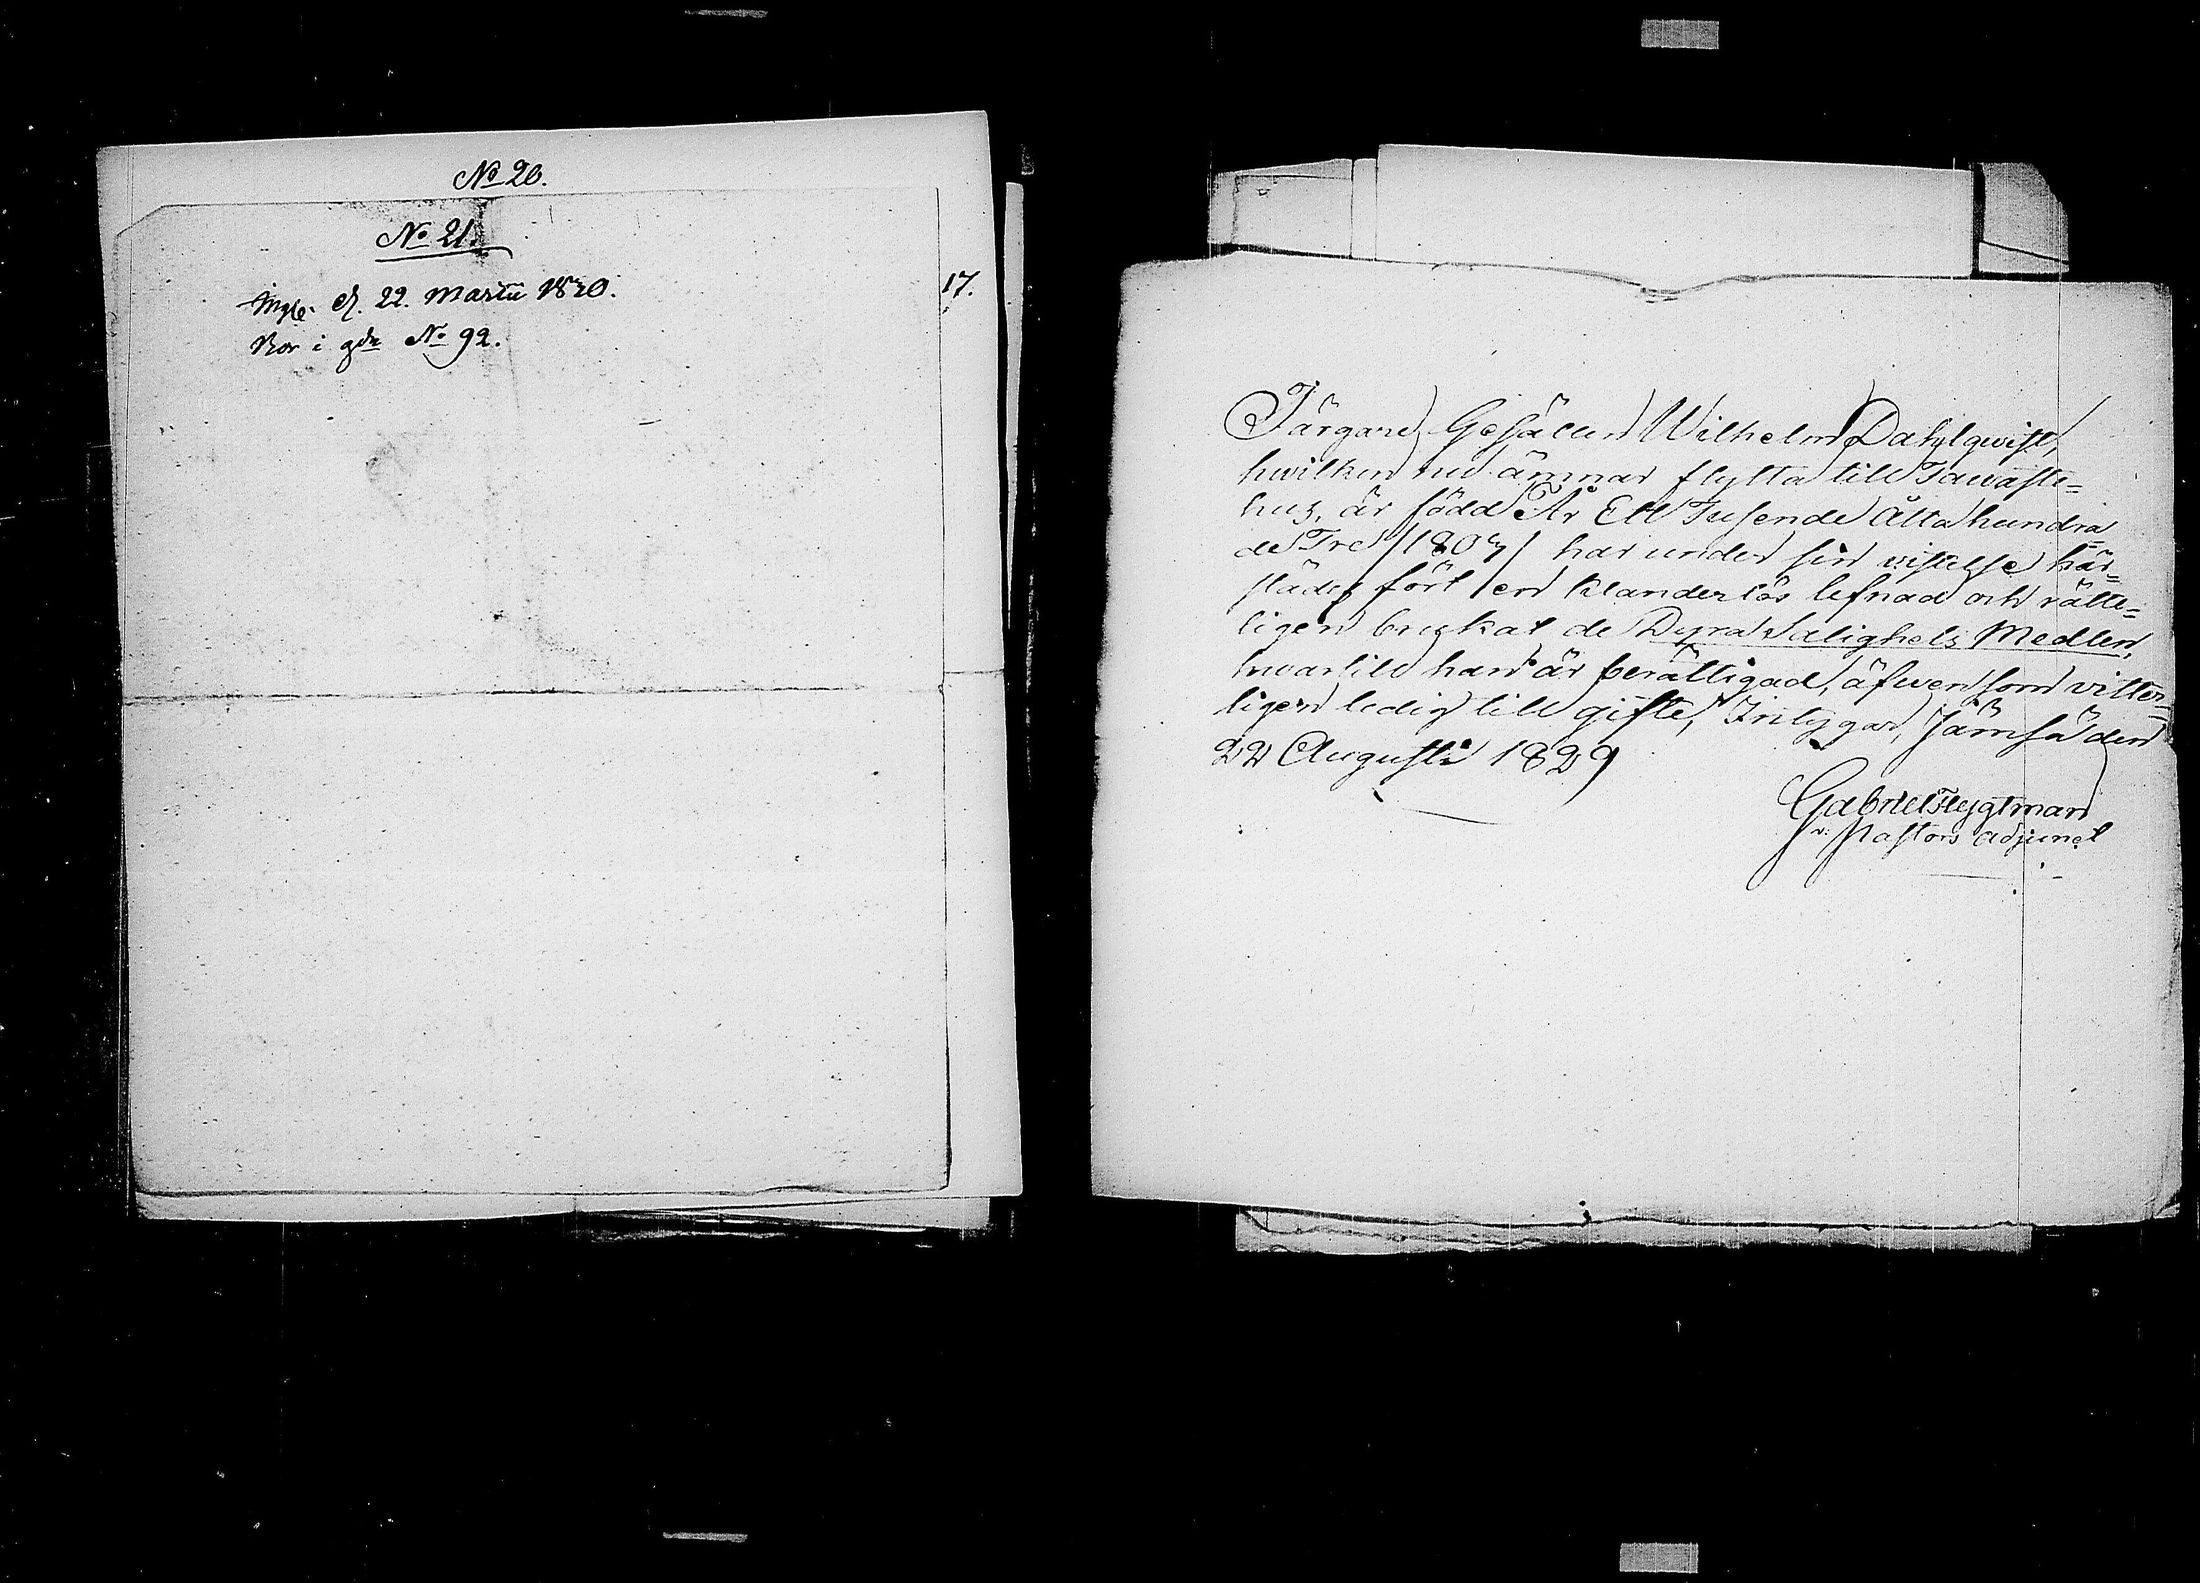 No 20.
No 21.
d. 22. Martii 1830.
Bor i gdn No 92.
17.
Färgare Gesällen Wilhelm Dahlqwist,
hwilken nu ämnar flytta till Tawaste=
hus, är född År Ett Tusende Åtta hundra
de Tre /1803/ har under sin vistelse här=
städes fört en klanderlös lefnad och rätte=
ligen brukat de Dyra Salighets Medlen,
hwartill han är berättigad, äfwensom vitter=
ligen ledig till gifte, Intygar, Jämsä den
22 Augusti 1829
Gabriel Flygtman
v. Pastors adjunct